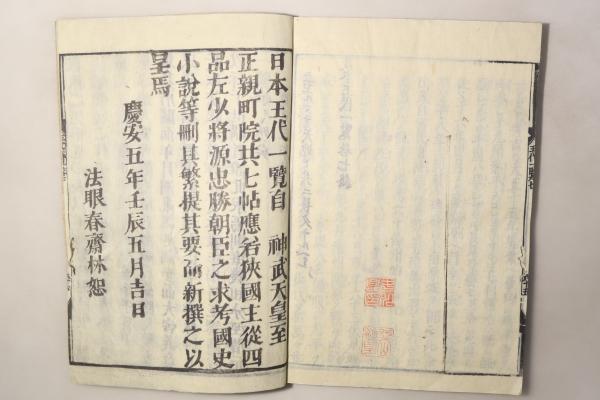 日本王代一覽自　神武天皇至
正親町院共七帖應若狹國主從四
品左少將源忠勝朝臣之求考國史
小說等刪其繁提其要而新撰之以
呈焉
慶安五年壬辰五月吉日
法眼春齋林恕